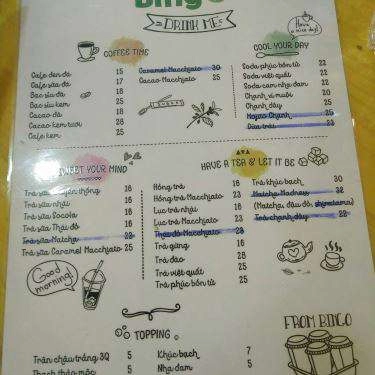 Bingo
DRINK MENU
Have a nice day!
COFFEE TIME
Cafe đen đá 15
Cafe sữa đá 17
Bạc sỉu đá 18
Bạc sỉu kem 25
Cacao đá 18
Cacao kem tươi 28
Cafe kem 25
Caramel Macchiato 30
Cacao Macchiato 25
COOL YOUR DAY
Soda phúc bồn tử 22
Soda việt quất 22
Soda cam nha đam 22
Chanh xí muội 20
Chanh dây 25
Mojito Chanh 25
Dừa trái 23
SWEET YOUR MIND
Trà sữa truyền thống 16
Trà sữa nhài 16
Trà sữa Socola 16
Trà sữa Thái đỏ 16
Trà sữa Matcha 23
Trà sữa Caramel Macchiato 25
Good morning!
HAVE A TEA & LET IT BE
Hồng trà 16
Hồng trà Macchiato 23
Lục trà nhài 16
Lục trà Macchiato 23
Thái đỏ Macchiato 23
Trà gừng 16
Trà đào 28
Trà việt quất 25
Trà phúc bồn tử 25
Trà khúc bạch 30
Matcha Madness 32
(Matcha, đậu đỏ,
Trà chanh dây 22
TOPPING
Trân châu trắng 3Q 5
Thạch thảo mộc 5
Khúc bạch 7
Nha đam 5
FROM BINGO